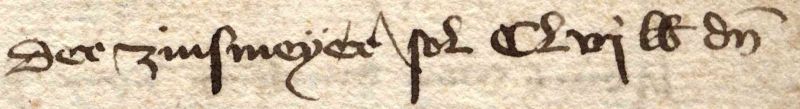 Der zinsmeyer sol CLvij lb dn̄